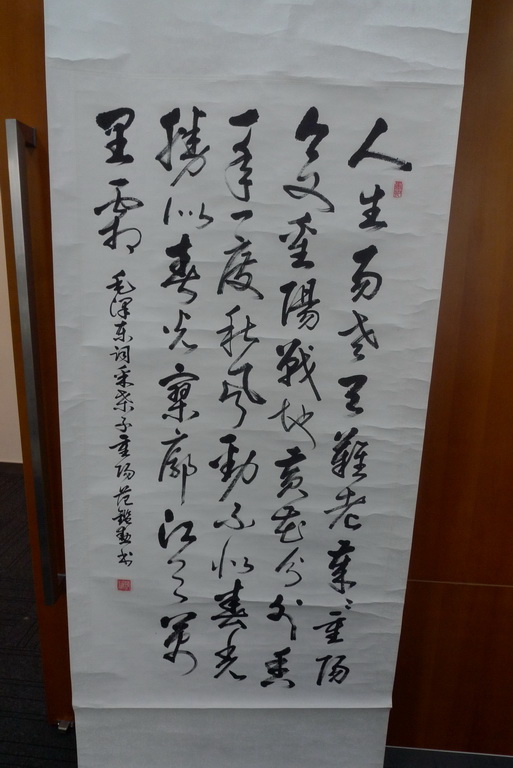 人生易老天難老歲〻重阳
今又重陽戰地黄花分外香
一年一度秋风勁不似春光
勝似春光寥廓江天萬
里霜
毛泽东词采桑子重阳范书